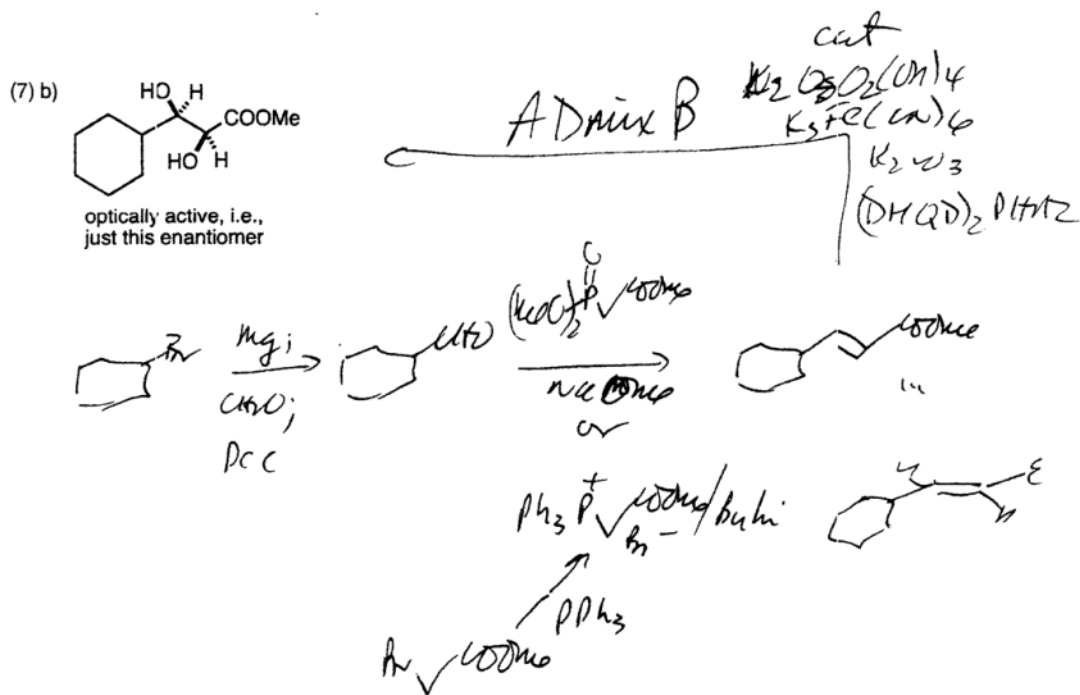 (7) b)
HO H
COOMe
HO H
optically active, i.e.,
just this enantiomer
AD mix B
cat
K2OsO2(OH)4
K3Fe(CN)6
K2CO3
(DHQD)2PHAZ
Br
Mg;
CH2O;
PCC
CHO
O
(MeO)2P COOMe
NaOMe
or
COOMe
Ph3P+ COOMe / BuLi
Br-
H E
H
PPh3
Br COOMe